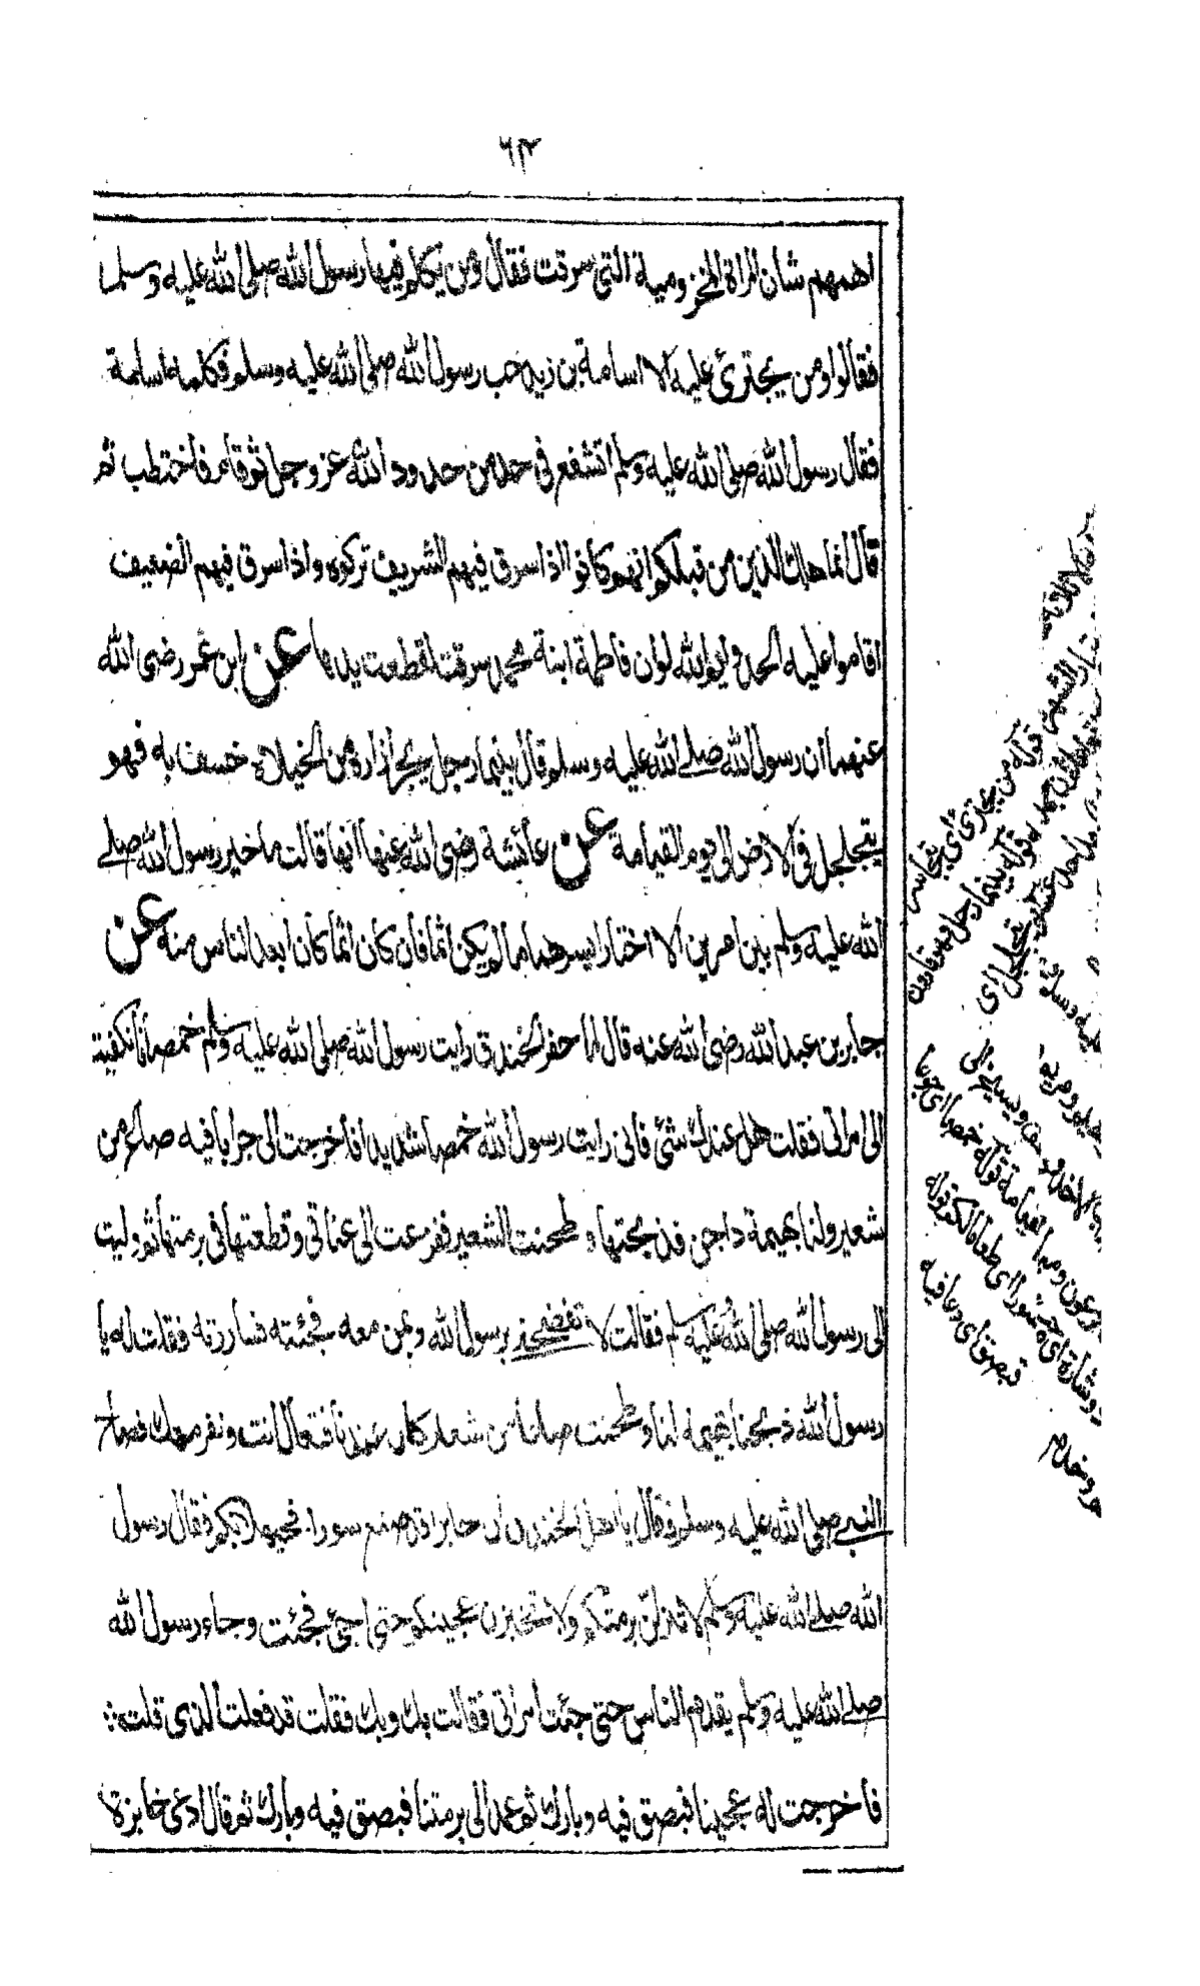 ٦١٣
اهمهم شان المراة المخزومية التي سرقت فقال ومن يكلم فيها رسول الله صلى الله عليه وسلم
فقالوا ومن يجترئ عليه الا اسامة بن زيد حب رسول الله صلى الله عليه وسلم فكلمه اسامة
فقال رسول الله صلى الله عليه وسلم اتشفع في حد من حدود الله عز وجل ثم قام فاختطب ثم
قال انما هلك الذين من قبلكم انهم كانوا اذا سرق فيهم الشريف تركوه واذا سرق فيهم الضعيف
اقاموا عليه الحد وايم الله لو ان فاطمة ابنة محمد سرقت لقطعت يدها عن ابن عمر رضى الله
عنهما ان رسول الله صلے الله عليه وسلم قال بينما رجل يجر ازاره من الخيلاء خسف به فهو
يتجلجل في الارض الى يوم القيامة عن عائشة رضى الله عنها انها قالت ما خير رسول الله صلے
الله عليه وسلم بين امرين الا اختار ايسرهما ما لم يكن اثما فان كان اثما كان ابعد الناس منه عن
جابر بن عبد الله رضى الله عنه قال لما حفر الخندق رايت رسول الله صلى الله عليه وسلم خمصا فانكفيت
الى امراتى فقلت هل عندك شئ فانى رايت رسول الله خمصا شديدا فاخرجت الى جرابا فيه صاع من
شعير ولنا بهيمة داجن فذبحتها وطحنت الشعير ففرغت الى عناقى وقطعتها في برمتها ثم وليت
الى رسول الله صلى الله عليه وسلم فقالت لا تفضحنى برسول الله وبمن معه فجئته فساررته فقلت له يا
رسول الله ذبحنا بهيمة لنا وطحنت صاعا من شعير كان عندنا فتعال انت ونفر معك فصاح
النبے صلى الله عليه وسلم وقال يا اهل الخندق ان جابرا قد صنع سورا فحيهلا بكم فقال رسول
الله صلے الله عليه وسلم لا تنزلن برمتكم ولا تخبزن عجينكم حتى اجئ فجئت وجاء رسول الله
صلے الله عليه وسلم يقدم الناس حتى جئت امراتى فقالت بك وبك فقلت قد فعلت الذى قلت
فاخرجت له عجينا فبصق فيه وبارك ثم عمد الى برمتنا فبصق فيه وبارك ثم قال ادعى خابزة
قوله من يجترئ اى يتجاسر
قوله بينما رجل هو قارون
يتجلجل اى
قوله خمصا اى جوعا
فبصق اى دعا فيه